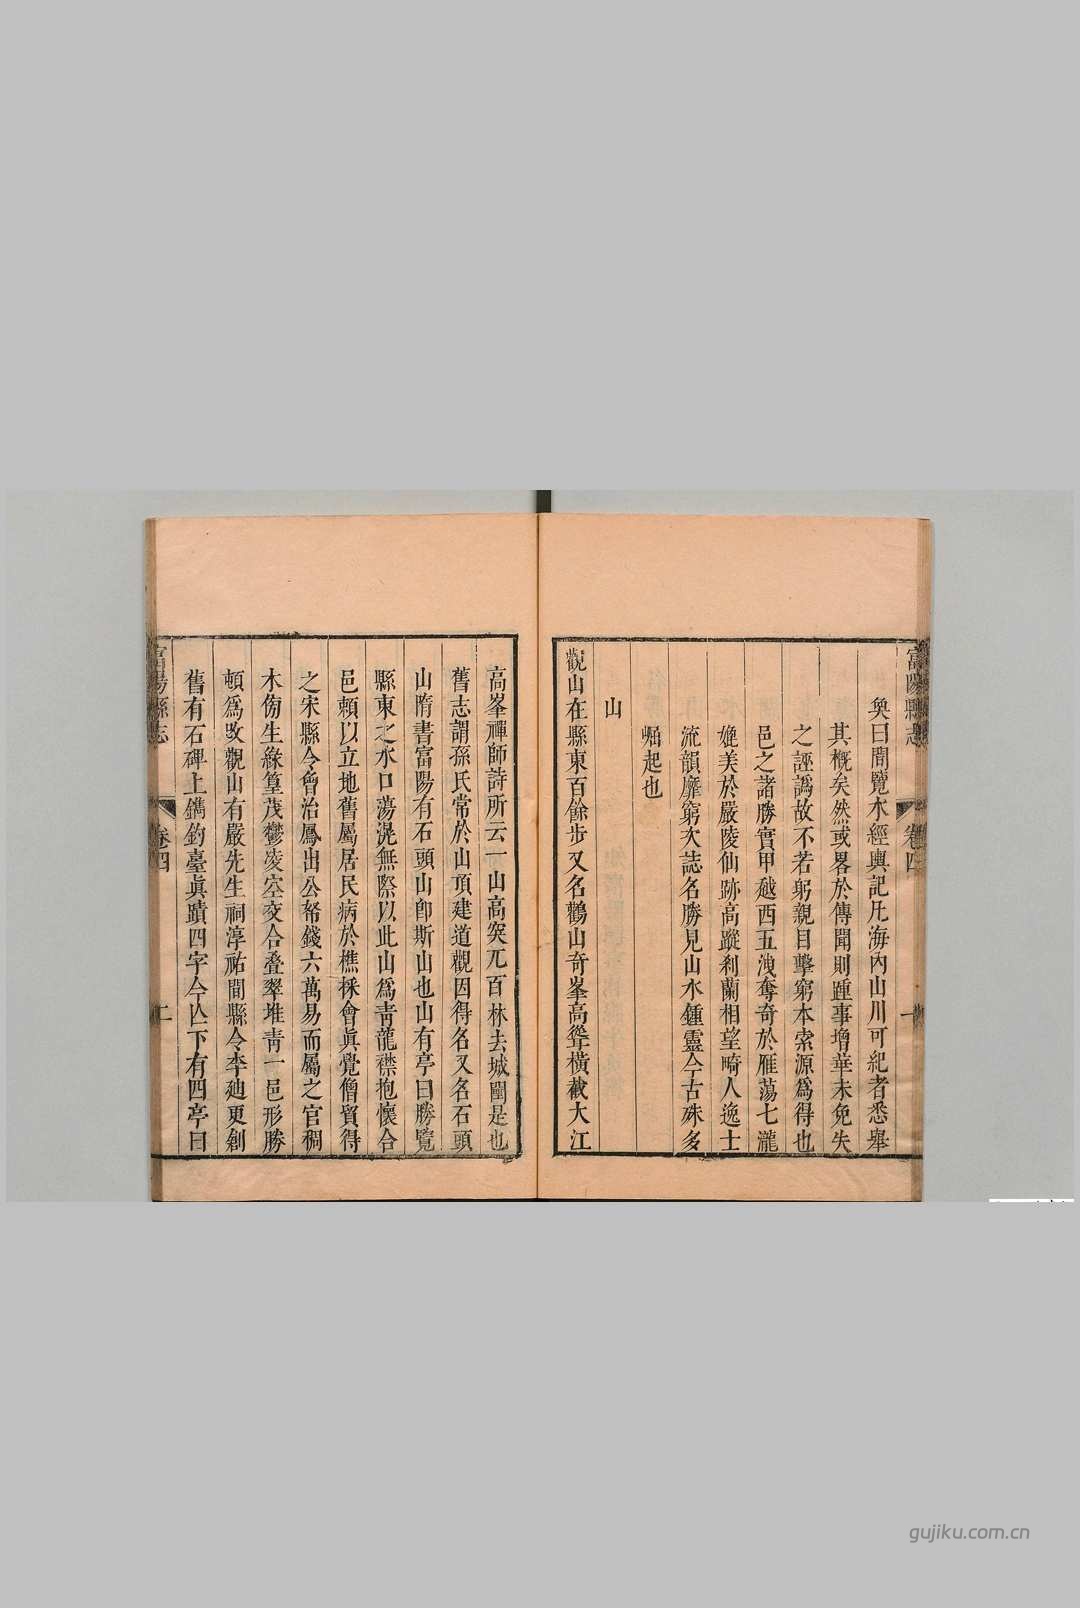 富陽縣志
卷四
一
奐曰間覽水經輿記凡海內山川可紀者悉舉
其概矣然或畧於傳聞則踵事增華未免失
之誣譌故不若躬親目擊窮本索源爲得也
邑之諸勝實甲越西五洩奪奇於雁蕩七瀧
媲美於嚴陵仙跡高蹤刹蘭相望畸人逸士
流韻靡窮次誌名勝見山水鍾靈今古殊多
崛起也
山
觀山在縣東百餘步又名鸛山奇峯高聳橫截大江
高峯禪師詩所云一山高突兀百林去城闉是也
舊志謂孫氏常於山頂建道觀因得名又名石頭
山隋書富陽有石頭山卽斯山也山有亭曰勝覽
縣東之水口蕩滉無際以此山爲靑龍襟抱懷合
邑賴以立地舊屬居民病於樵採會眞覺僧貿得
之宋縣令會治鳳出公帑錢六萬易而屬之官稠
木傍生綠篁茂鬱凌空交合叠翠堆靑一邑形勝
頓爲改觀山有嚴先生祠淳祐間縣令李廸更創
舊有石碑上鐫釣臺眞蹟四字今亾下有四亭曰
富陽縣志
卷四
二
gujiku.com.cn